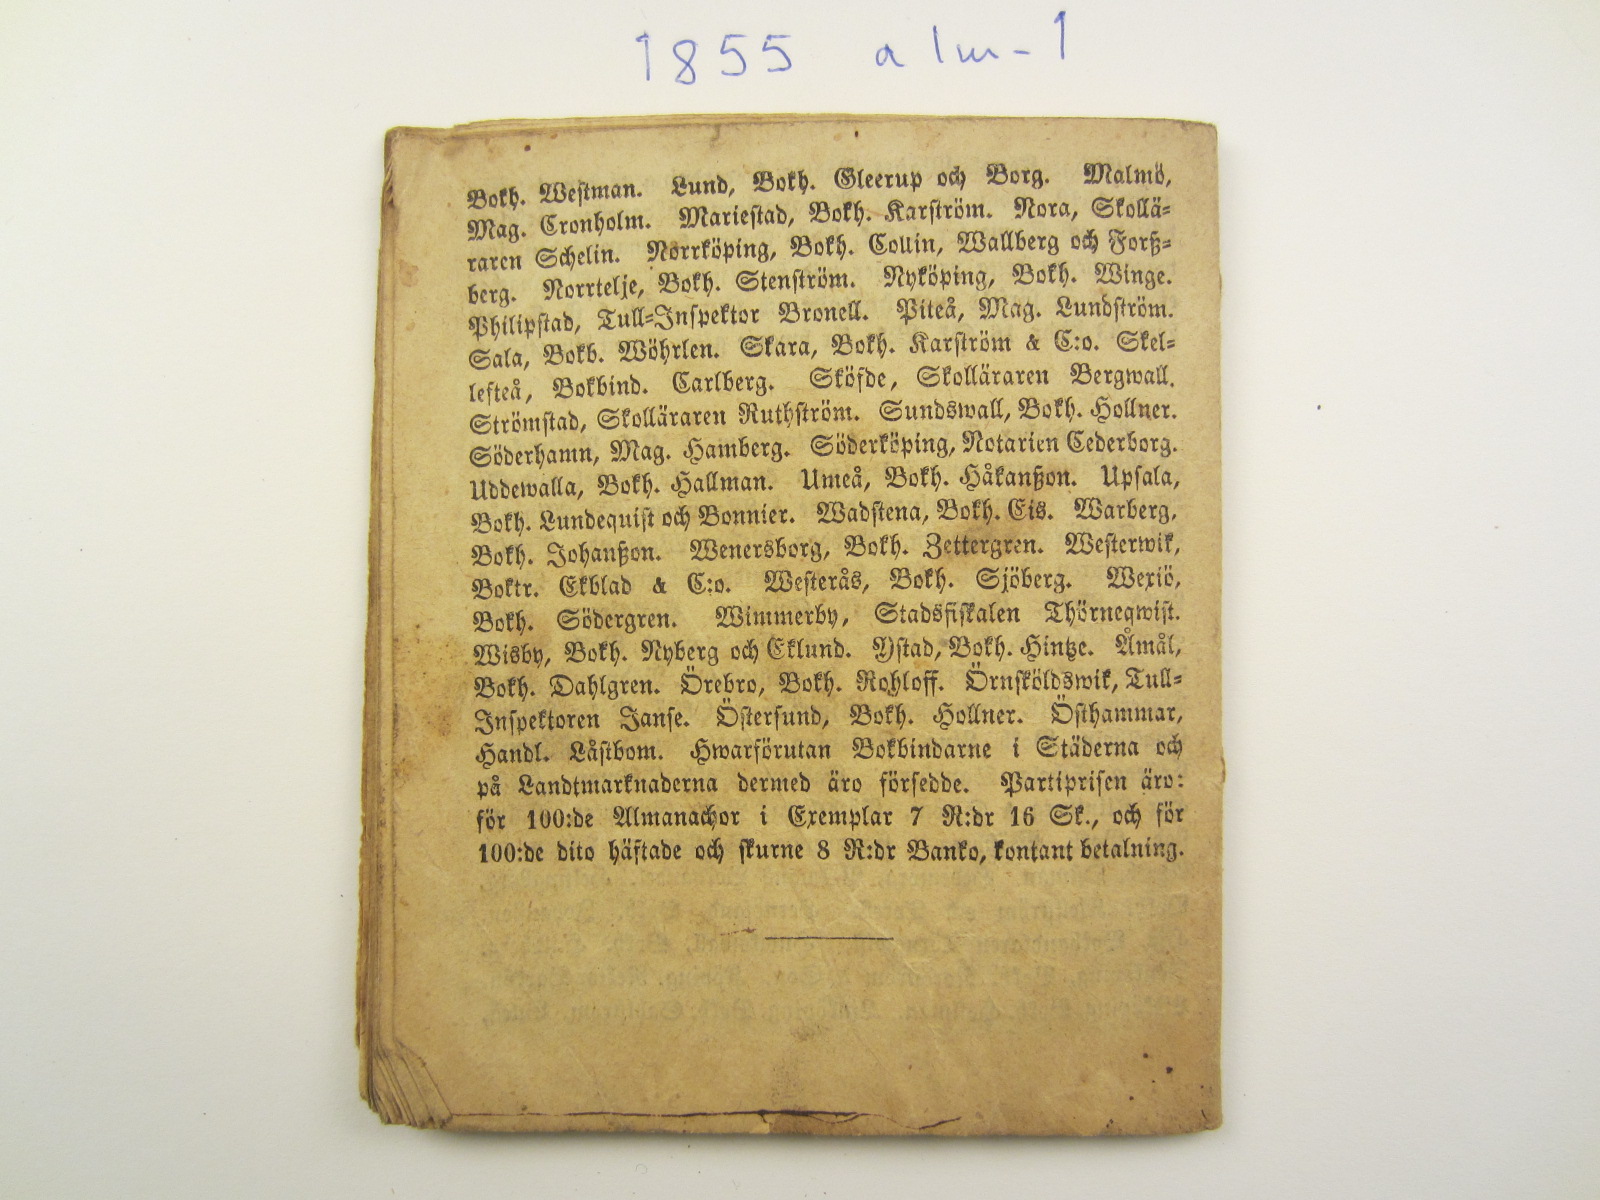 1855 alm-1
Bokh. Westman. Lund, Bokh. Gleerup och Borg. Malmö,
Mag. Cronholm. Mariestad, Bokh. Karström. Nora, Skollä-
raren Schelin. Norrköping, Bokh. Collin, Wallberg och Forß-
berg. Norrtelje, Bokh. Stenström. Nyköping, Bokh. Winge.
Philipstad, Tull-Inspektor Bronell. Piteå, Mag. Lundström.
Sala, Bokb. Wöhrlen. Skara, Bokh. Karström & C:o. Skel-
lefteå, Bokbind. Carlberg. Sköfde, Skolläraren Bergwall.
Strömstad, Skolläraren Ruthström. Sundswall, Bokh. Hollner.
Söderhamn, Mag. Hamberg. Söderköping, Notarien Cederborg.
Uddewalla, Bokh. Hallman. Umeå, Bokh. Håkanßon. Upsala,
Bokh. Lundequist och Bonnier. Wadstena, Bokh. Eis. Warberg,
Bokh. Johanßon. Wenersborg, Bokh. Zettergren. Westerwik,
Boktr. Ekblad & C:o. Westerås, Bokh. Sjöberg. Wexiö,
Bokh. Södergren. Wimmerby, Stadsfiskalen Thörneqwist.
Wisby, Bokh. Nyberg och Eklund. Ystad, Bokh. Hintze. Åmål,
Bokh. Dahlgren. Örebro, Bokh. Rohloff. Örnsköldswik, Tull-
Inspektoren Janse. Östersund, Bokh. Hollner. Östhammar,
Handl. Låstbom. Hwarförutan Bokbindarne i Städerna och
på Landtmarknaderna dermed äro försedde. Partiprisen äro:
för 100:de Almanachor i Exemplar 7 R:dr 16 Sk., och för
100:de dito häftade och skurne 8 R:dr Banko, kontant betalning.